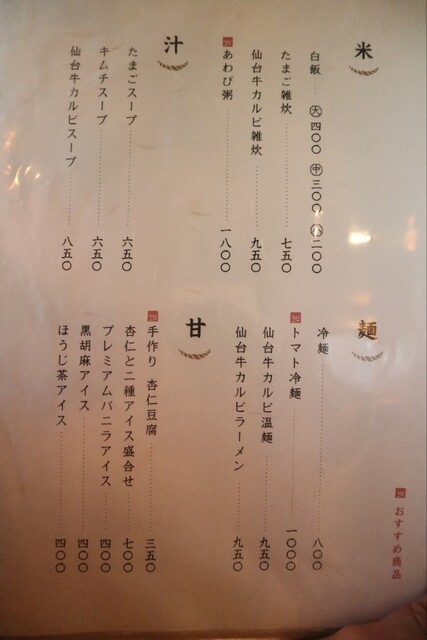 米
白飯 大 四〇〇 中 三〇〇 小 二〇〇
たまご雑炊 七五〇
仙台牛カルビ雑炊 九五〇
あわび粥 一八〇〇
汁
たまごスープ 六五〇
キムチスープ 六五〇
仙台牛カルビスープ 八五〇
麺
冷麺 八〇〇
トマト冷麺 一〇〇〇
仙台牛カルビ温麺 九五〇
仙台牛カルビラーメン 九五〇
甘
手作り 杏仁豆腐 三五〇
杏仁と二種アイス盛合せ 七〇〇
プレミアムバニラアイス 四〇〇
黒胡麻アイス 四〇〇
ほうじ茶アイス 四〇〇
おすすめ商品